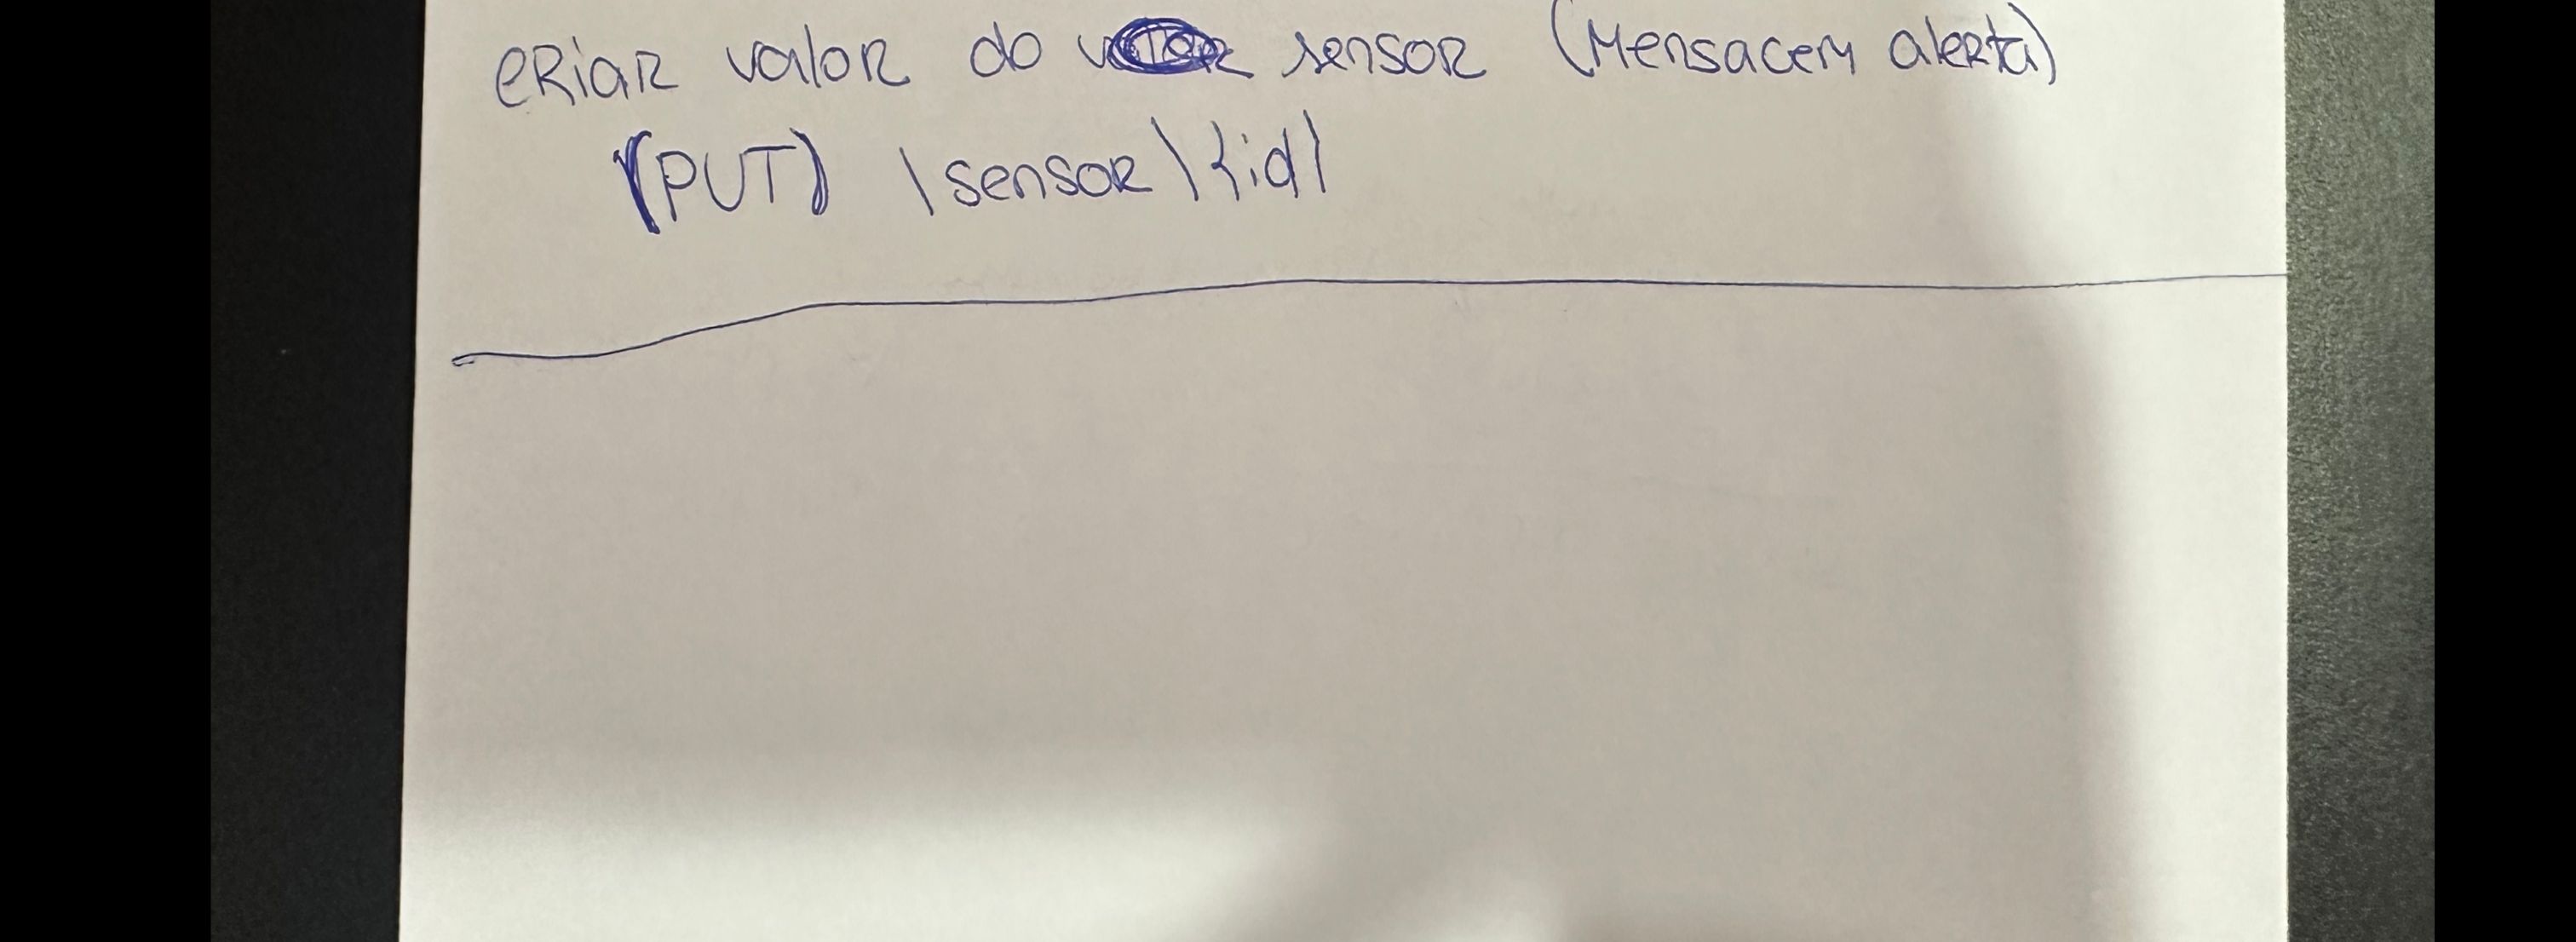 CRiar valor do sensor (Mensacem alerta)
(PUT) \sensor\{id}